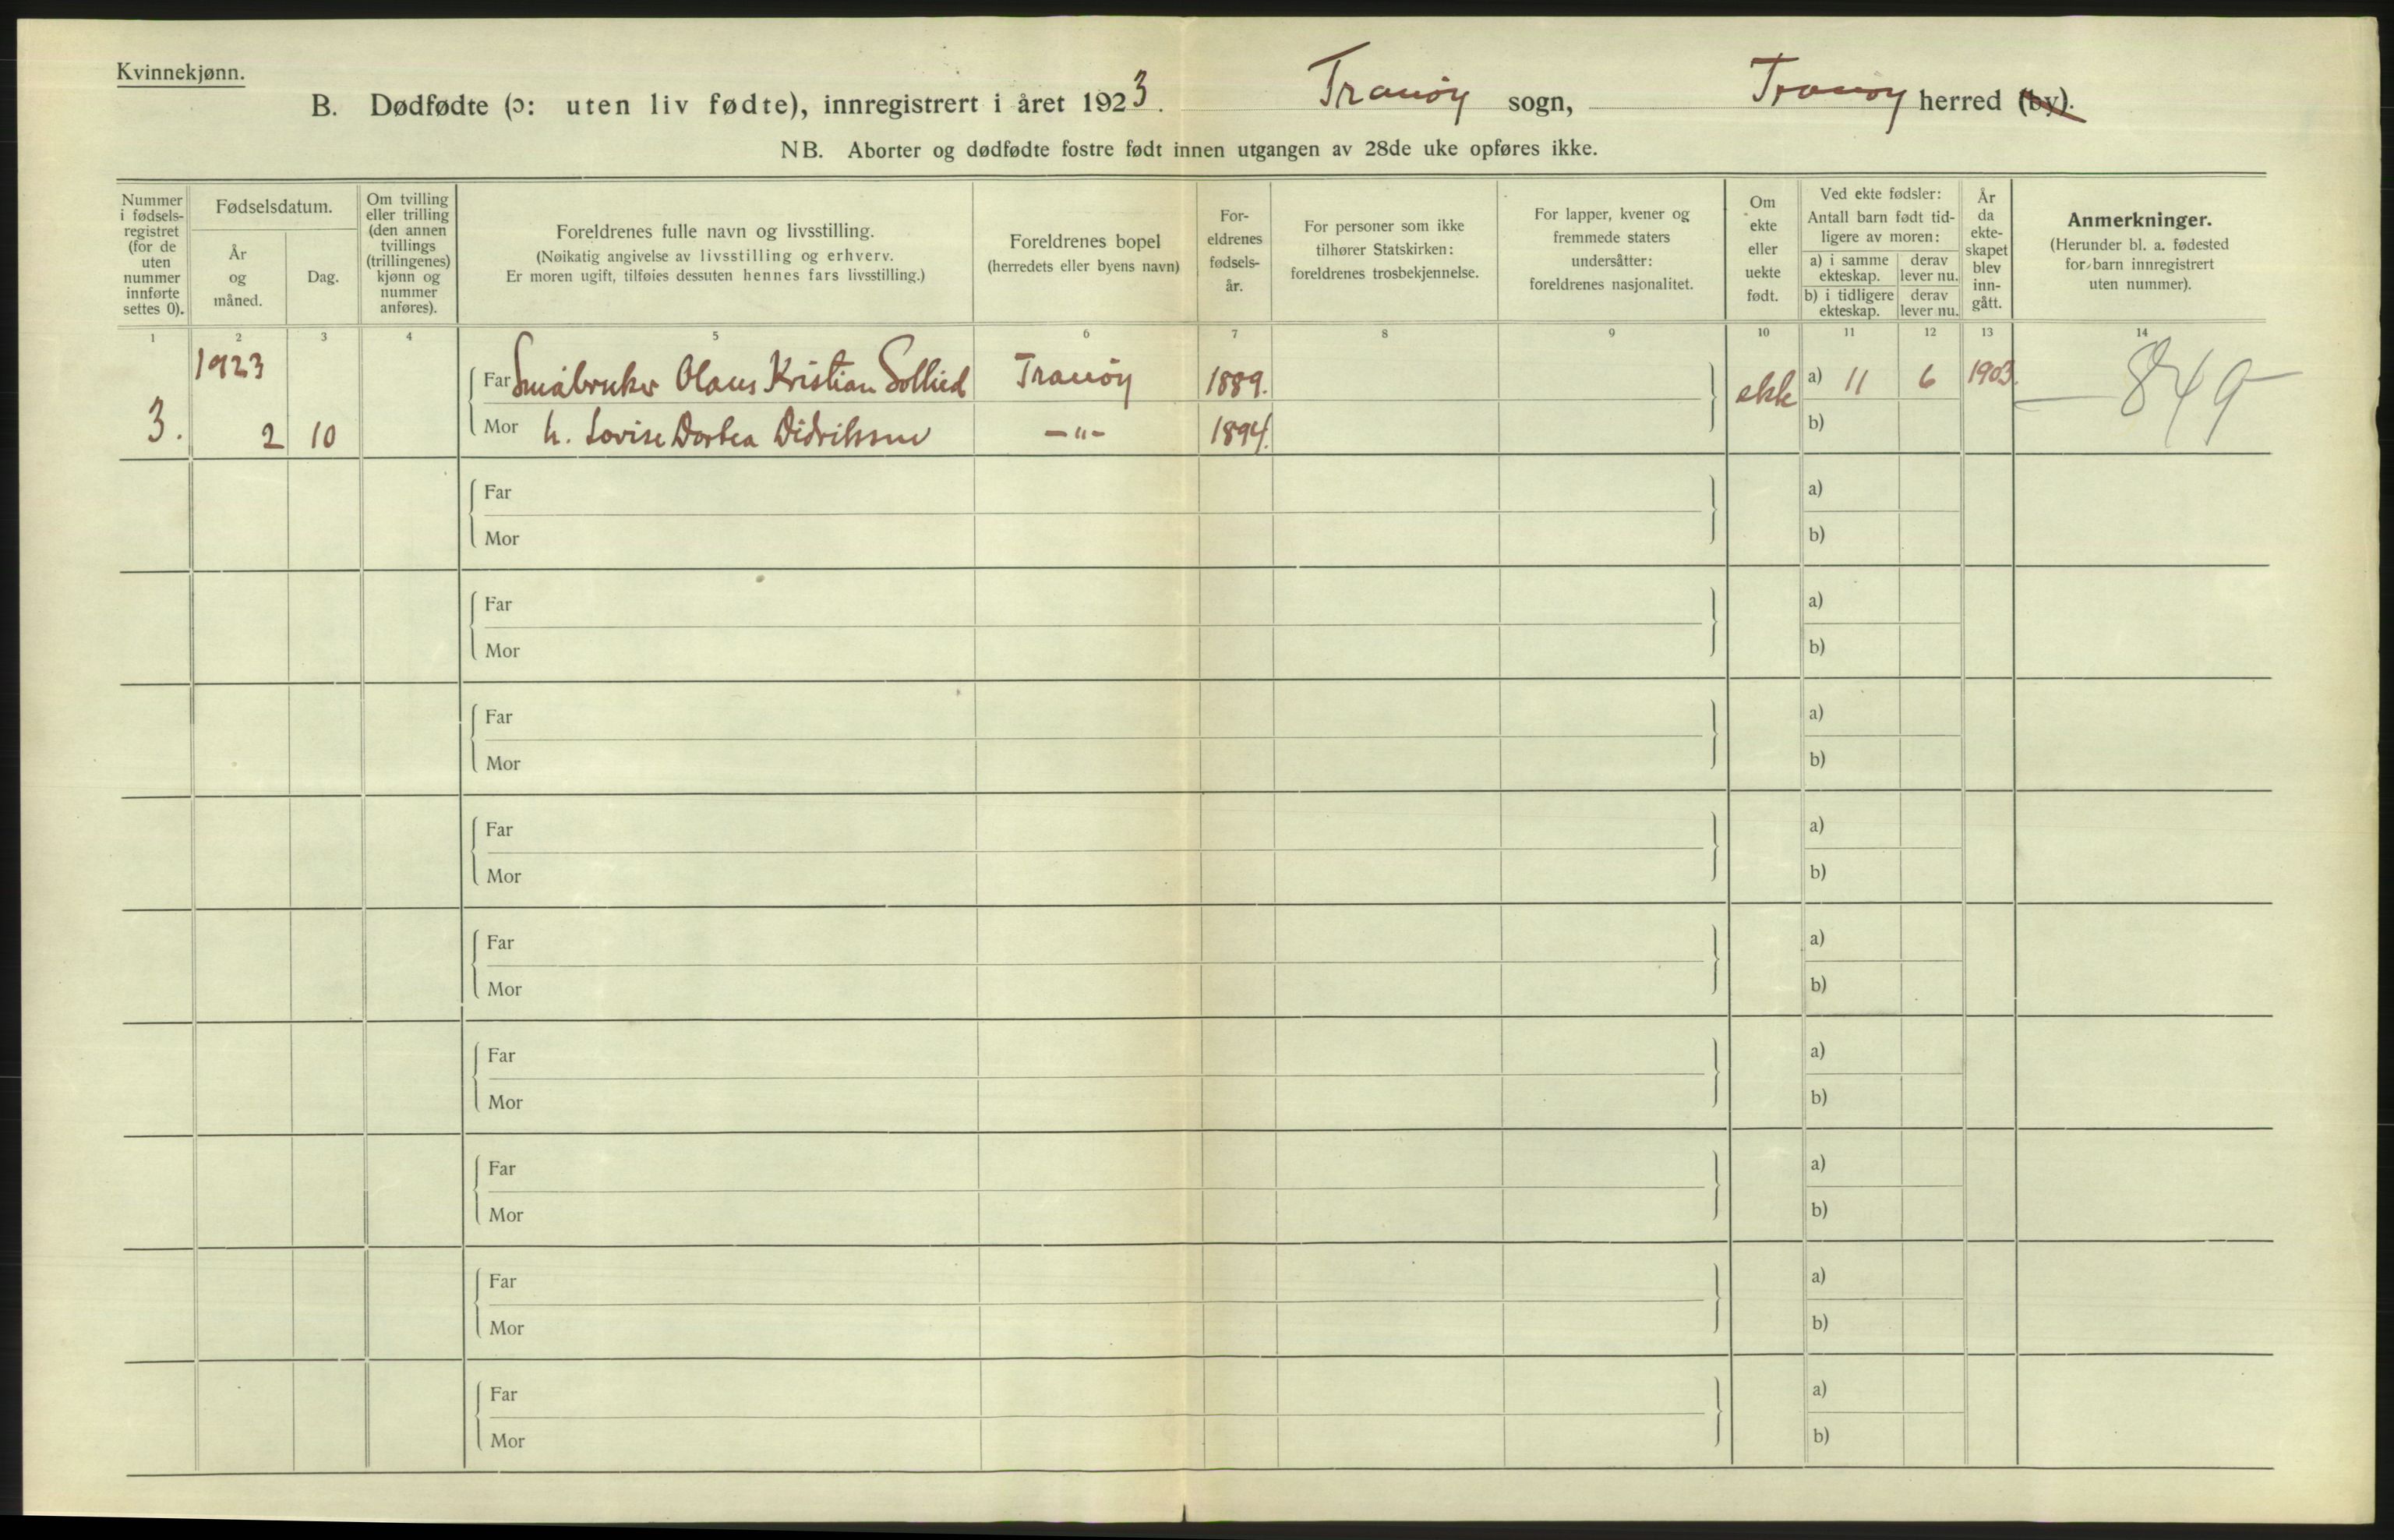 Kvinnekjønn.
B. Dødfødte (ɔ: uten liv fødte), innregistrert i året 1923. Tranöy sogn, Tranöy herred (by).
NB. Aborter og dødfødte fostre født innen utgangen av 28de uke opføres ikke.
Nummer
i fødsels-
registret
(for de
uten
nummer
innførte
settes 0).
Fødselsdatum.
År
og
måned.
Dag.
Om tvilling
eller trilling
(den annen
tvillings
(trillingenes)
kjønn og
nummer
anføres).
Foreldrenes fulle navn og livsstilling.
(Nøikatig angivelse av livsstilling og erhverv.
Er moren ugift, tilføies dessuten hennes fars livsstilling.)
Foreldrenes bopel
(herredets eller byens navn)
For-
eldrenes
fødsels-
år.
For personer som ikke
tilhører Statskirken:
foreldrenes trosbekjennelse.
For lapper, kvener og
fremmede staters
undersåtter:
foreldrenes nasjonalitet.
Om
ekte
eller
uekte
født.
Ved ekte fødsler:
Antall barn født tid-
ligere av moren:
a) i samme
ekteskap.
derav
lever nu.
b) i tidligere
ekteskap.
derav
lever nu.
År
da
ekte-
skapet
blev
inn-
gått.
Anmerkninger.
(Herunder bl. a. fødested
for barn innregistrert
uten nummer).
1 2 3 4 5 6 7 8 9 10 11 12 13 14
1923
Far Småbruker Olaus Kristian Sollied Tranöy 1889. a) 11 6 1903. 849
3. 2 10 Mor h. Lovise Dortea Didriksen —"— 1894. b)
Far a)
Mor b)
Far a)
Mor b)
Far a)
Mor b)
Far a)
Mor b)
Far a)
Mor b)
Far a)
Mor b)
Far a)
Mor b)
Far a)
Mor b)
Far a)
Mor b)